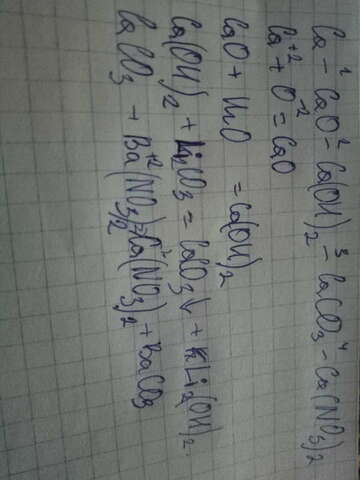 Ca -¹ CaO -² Ca(OH)₂ -³ CaCO₃ -⁴ Ca(NO₃)₂
Ca⁺² + O⁻² = CaO
CaO + H₂O = Ca(OH)₂
Ca(OH)₂ + Li₂CO₃ = CaCO₃↓ + Li₂(OH)₂
CaCO₃ + Ba⁺²(NO₃)₂ = Ca(NO₃)₂ + BaCO₃